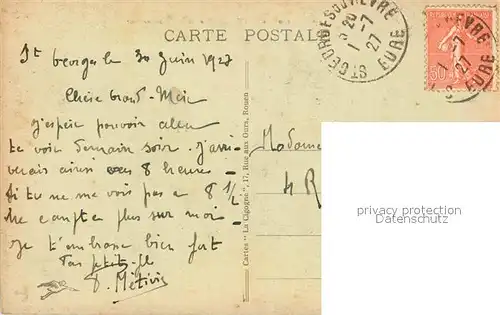 CARTE POSTALE
St Georges le 30 Juin 1927
Chère Grand-Mère
J'espère pouvoir aller
te voir demain soir. J'arri-
verais ainsi vers 8 heures
si tu ne me vois pas a 8 1/2
ne compte plus sur moi
Je t'embrasse bien fort
Ton petit-fils
Cartes "La Cigogne", 17, Rue aux Ours, Rouen
Madame
4 R
ST GEORGES DU VIEVRE
1-7
27
EURE
50
VIEVRE
1-7
27
EURE
privacy protection
Datenschutz